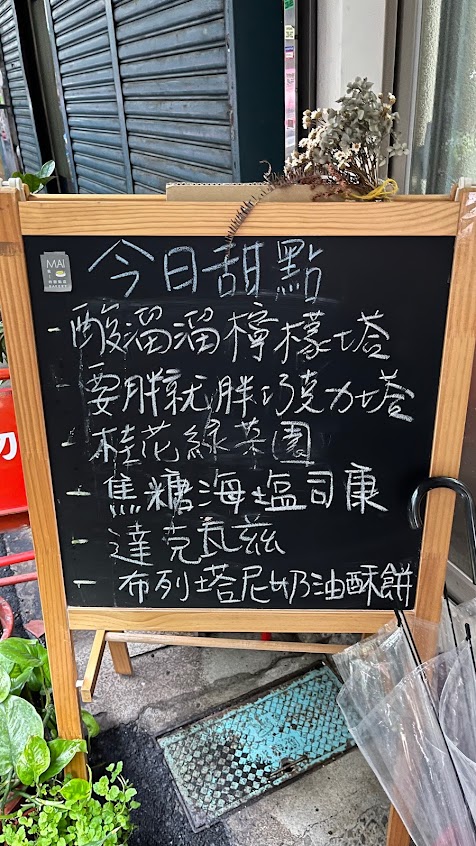 MAI
今日甜點
- 酸溜溜檸檬塔
- 要胖就胖巧克力塔
- 桂花綠茶園
- 焦糖海塩司康
- 達克瓦茲
- 布列塔尼奶油酥餅